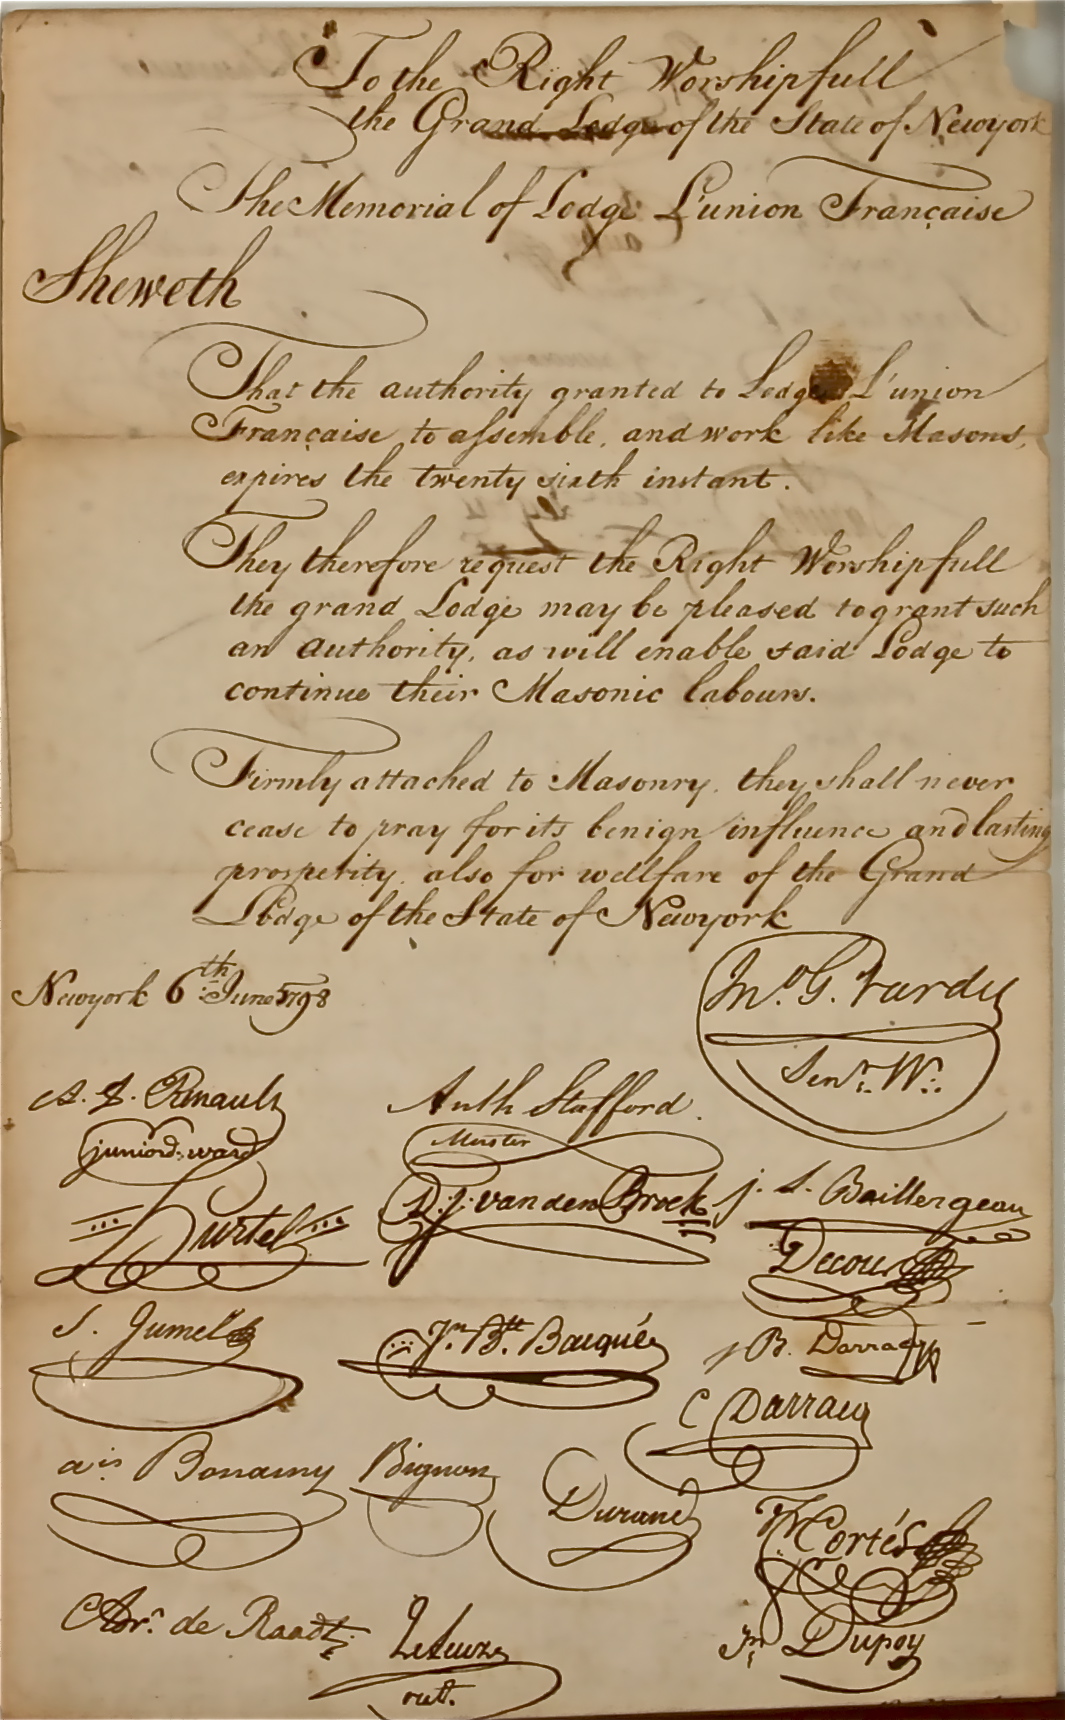 To the Right Worshipfull
the Grand Lodge of the State of Newyork
The Memorial of Lodge L'union Française
Sheweth
That the authority granted to Lodge L'union
Française to assemble, and work like Masons,
expires the twenty sixth instant.
They therefore request the Right Worshipfull
the grand Lodge may be pleased to grant such
an authority, as will enable said Lodge to
continue their Masonic labours.
Firmly attached to Masonry, they shall never
cease to pray for its benign influence and lasting
prosperity, also for wellfare of the Grand
Lodge of the State of Newyork
Newyork 6th June 1798
Jno. G. Tardy
Senr. W.
A. J. Renault
junior ward
Anth Stafford
Master
D. J. van den Broek
j. S. Baillergeau
Durtel
Decour
S. Jumel
Jn. Bte. Bacqué
J B. Darracq
C Darracq
ais Bonamy
Bignon
Durand
Cortés
Adr. de Raadt
Jn Dupoy